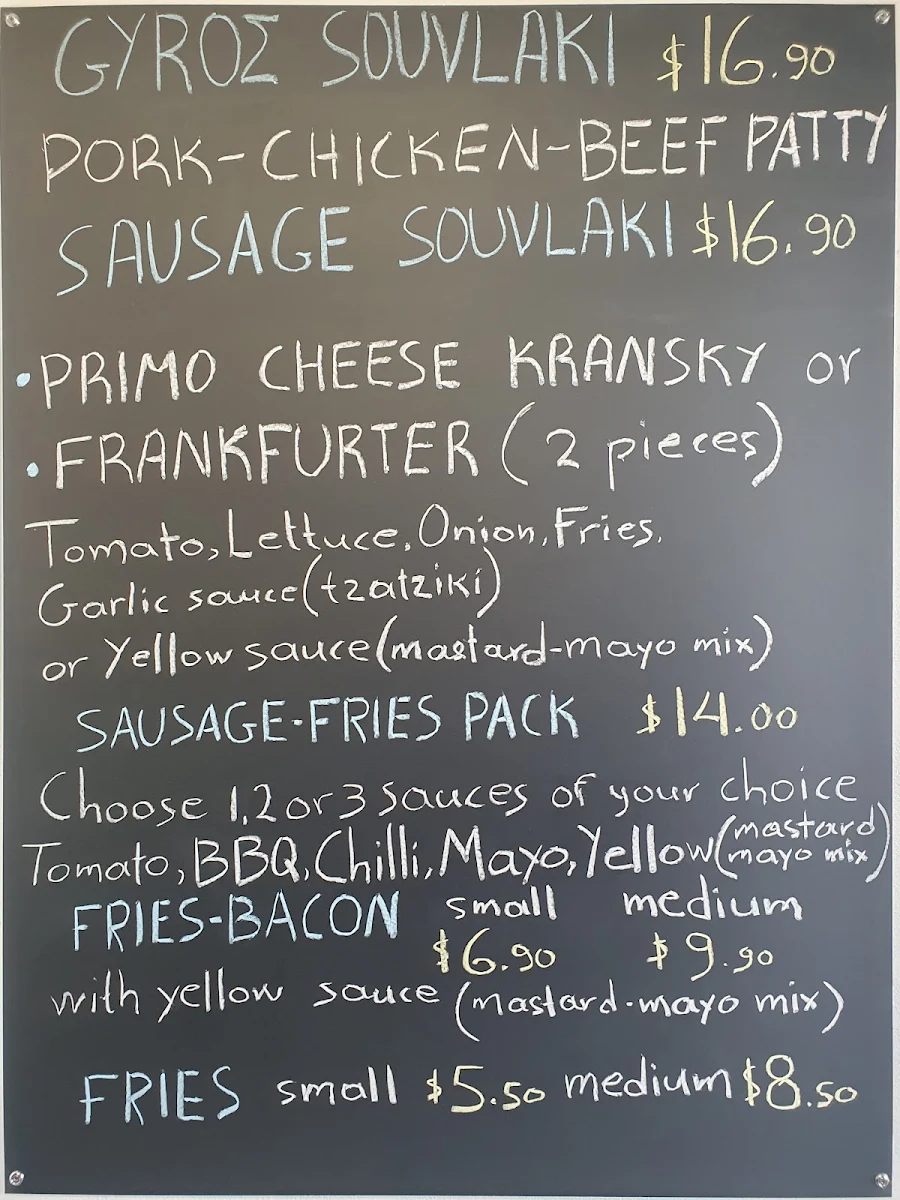 GYROΣ SOUVLAKI $16.90
PORK-CHICKEN-BEEF PATTY
SAUSAGE SOUVLAKI $16.90
•PRIMO CHEESE KRANSKY or
•FRANKFURTER (2 pieces)
Tomato, Lettuce, Onion, Fries,
Garlic sauce (tzatziki)
or Yellow sauce (mastard-mayo mix)
SAUSAGE-FRIES PACK $14.00
Choose 1,2 or 3 sauces of your choice
Tomato, BBQ, Chilli, Mayo, Yellow (mastard mayo mix)
FRIES-BACON small medium
$6.90 $9.90
with yellow sauce (mastard-mayo mix)
FRIES small $5.50 medium $8.50